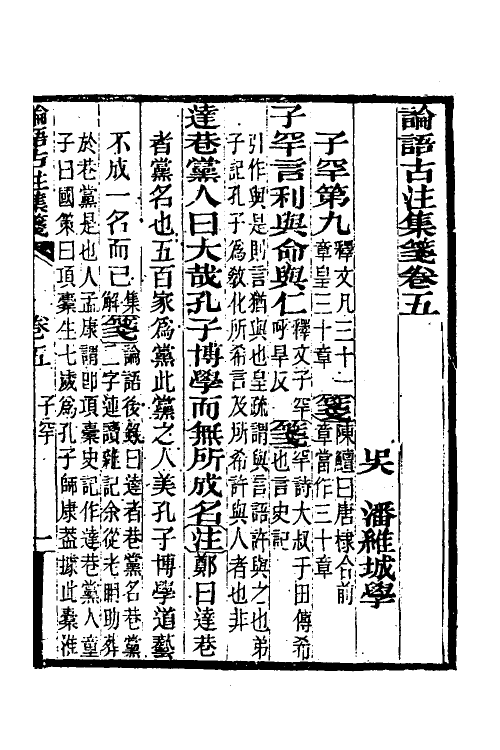 論語古注集箋卷五
吳 潘維城學
子罕第九 釋文凡三十一章皇三十章 箋 陳鱣曰唐棣合前章當作三十章
子罕言利與命與仁 釋文子罕呼旱反 箋 罕詩大叔于田傳希也言史記
引作與是則言猶與也皇疏謂與言語許與之也弟
子記孔子爲敎化所希言及所希許與人者也非
達巷黨人曰大哉孔子博學而無所成名 注 鄭曰達巷
者黨名也五百家爲黨此黨之人美孔子博學道藝
不成一名而已 集解 箋 論語後錄曰達者巷黨名巷黨二字連讀雜記余從老聃助葬
於巷黨是也人孟康謂卽項橐史記作達巷黨人童
子曰國策曰項橐生七歲爲孔子師康葢據此橐淮
論語古注集箋 卷五 子罕 一